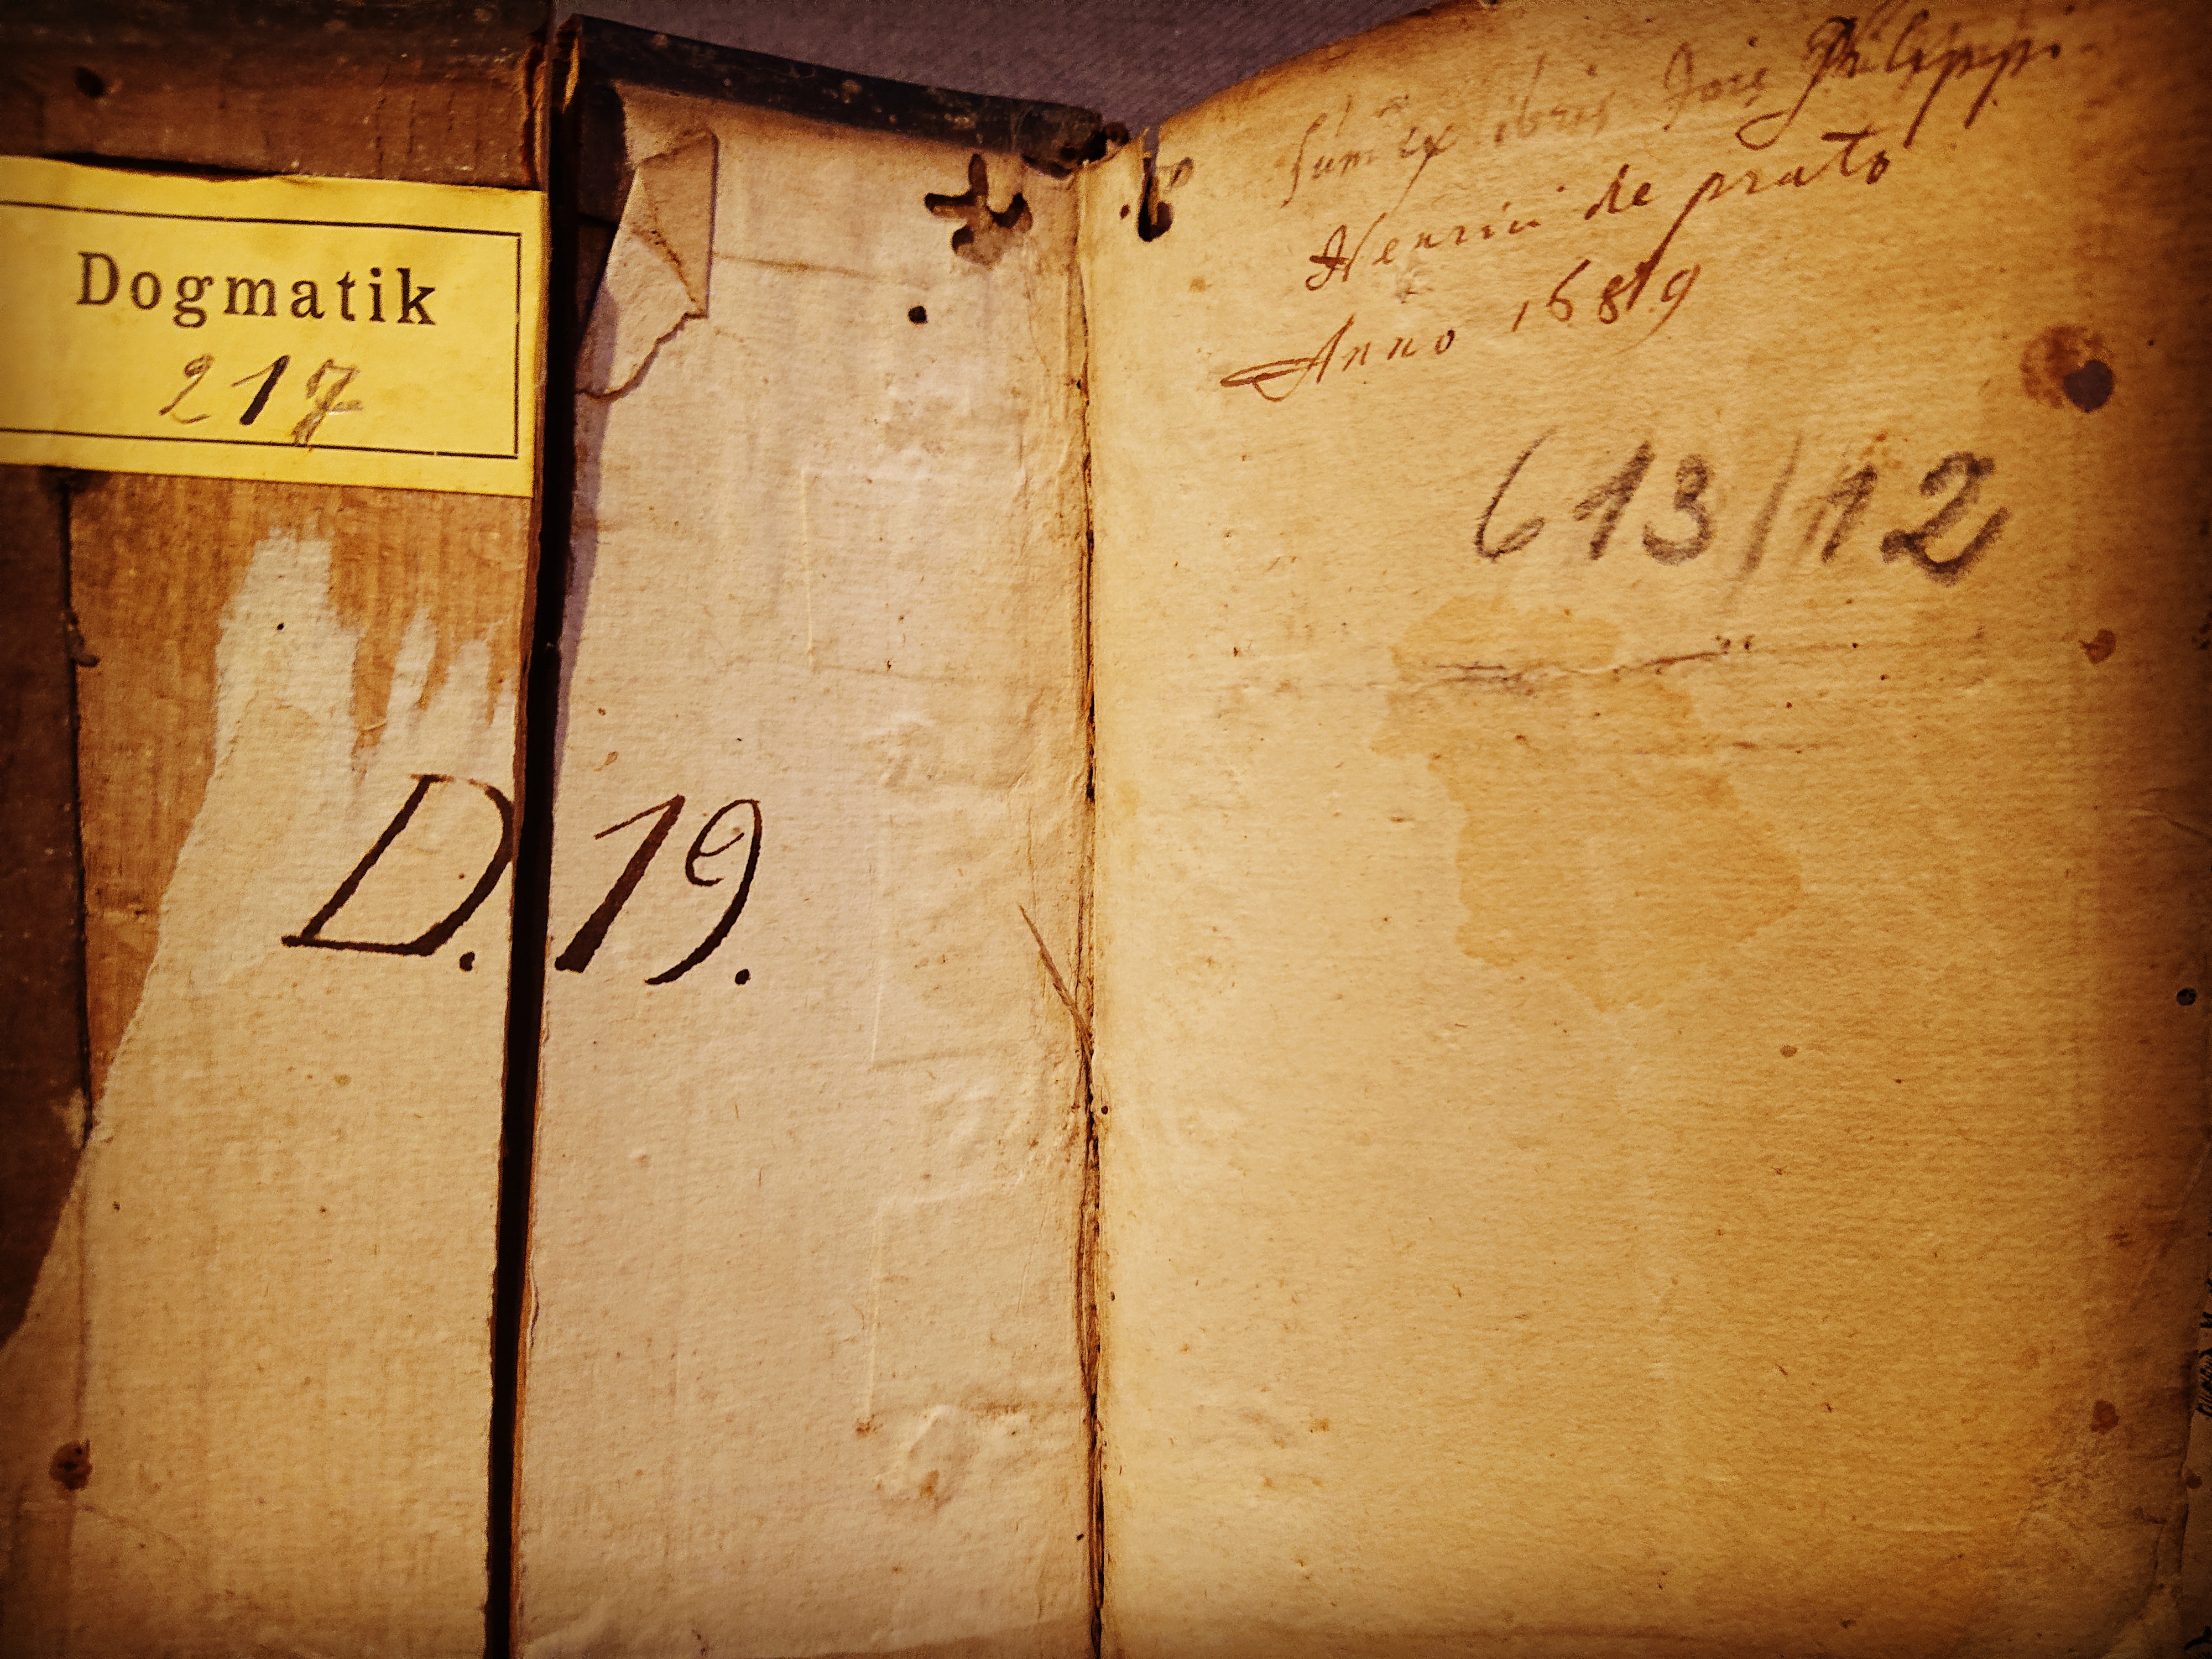 Dogmatik
217
D. 19.
Sum ex libris Jois Philippi
Henrici de prato
Anno 1689
613/12